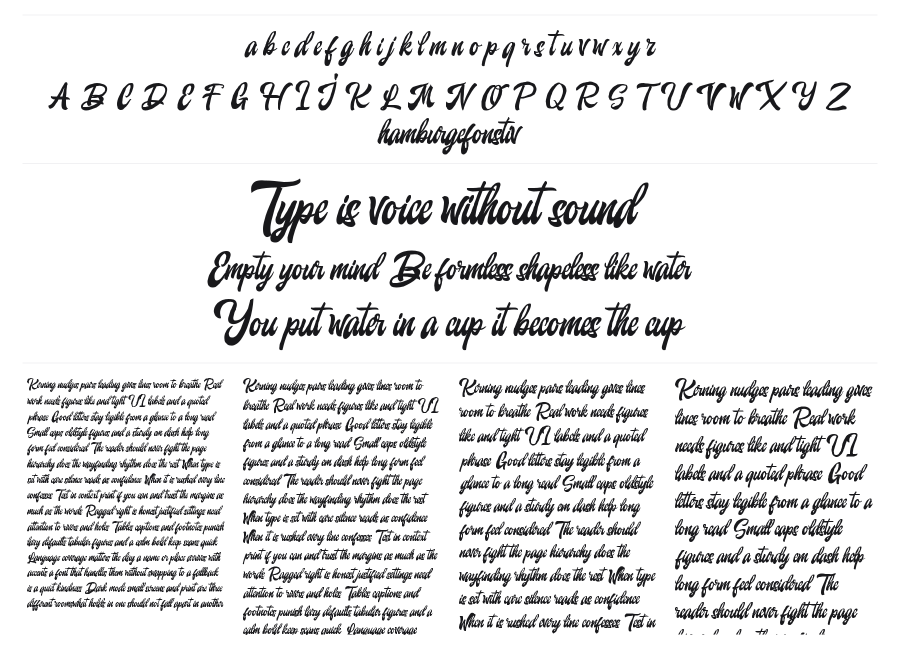 a b c d e f g h i j k l m n o p q r s t u v w x y z
A B C D E F G H I J K L M N O P Q R S T U V W X Y Z
hamburgefonstiv
Type is voice without sound
Empty your mind Be formless shapeless like water
You put water in a cup it becomes the cup
Kerning nudges pairs leading gives lines room to breathe Real
work needs figures like and tight UI labels and a quoted
phrase Good letters stay legible from a glance to a long read
Small caps oldstyle figures and a sturdy em dash help long
form feel considered The reader should never fight the page
hierarchy does the wayfinding rhythm does the rest When type is
set with care silence reads as confidence When it is rushed every line
confesses Test in context print if you can and trust the margins as
much as the words Ragged right is honest justified settings need
attention to rivers and holes Tables captions and footnotes punish
lazy defaults tabular figures and a calm bold keep scans quick
Language coverage matters the day a name or place arrives with
accents a font that handles them without swapping to a fallback
is a quiet kindness Dark mode small screens and print are three
different rooms what holds in one should not fall apart in another
Kerning nudges pairs leading gives lines room to
breathe Real work needs figures like and tight UI
labels and a quoted phrase Good letters stay legible
from a glance to a long read Small caps oldstyle
figures and a sturdy em dash help long form feel
considered The reader should never fight the page
hierarchy does the wayfinding rhythm does the rest
When type is set with care silence reads as confidence
When it is rushed every line confesses Test in context
print if you can and trust the margins as much as the
words Ragged right is honest justified settings need
attention to rivers and holes Tables captions and
footnotes punish lazy defaults tabular figures and a
calm bold keep scans quick Language coverage
Kerning nudges pairs leading gives lines
room to breathe Real work needs figures
like and tight UI labels and a quoted
phrase Good letters stay legible from a
glance to a long read Small caps oldstyle
figures and a sturdy em dash help long
form feel considered The reader should
never fight the page hierarchy does the
wayfinding rhythm does the rest When type
is set with care silence reads as confidence
When it is rushed every line confesses Test in
Kerning nudges pairs leading gives
lines room to breathe Real work
needs figures like and tight UI
labels and a quoted phrase Good
letters stay legible from a glance to a
long read Small caps oldstyle
figures and a sturdy em dash help
long form feel considered The
reader should never fight the page